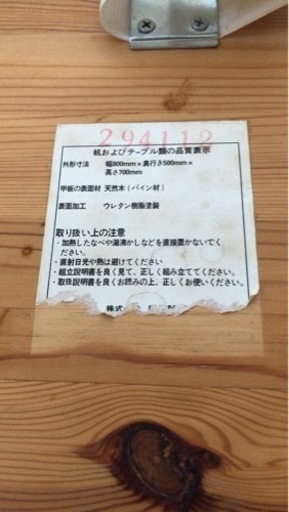 294112
机およびテーブル類の品質表示
外形寸法 幅800mm×奥行き500mm×
高さ700mm
甲板の表面材 天然木(パイン材)
表面加工 ウレタン樹脂塗装
取り扱い上の注意
・加熱したなべや湯沸かしなどを直接置かないでく
ださい。
・直射日光や熱は避けてください
・組立説明書を良く見て、正しく組み立ててください。
・取扱説明書を良くお読みの上、正しくお使いください。
株式